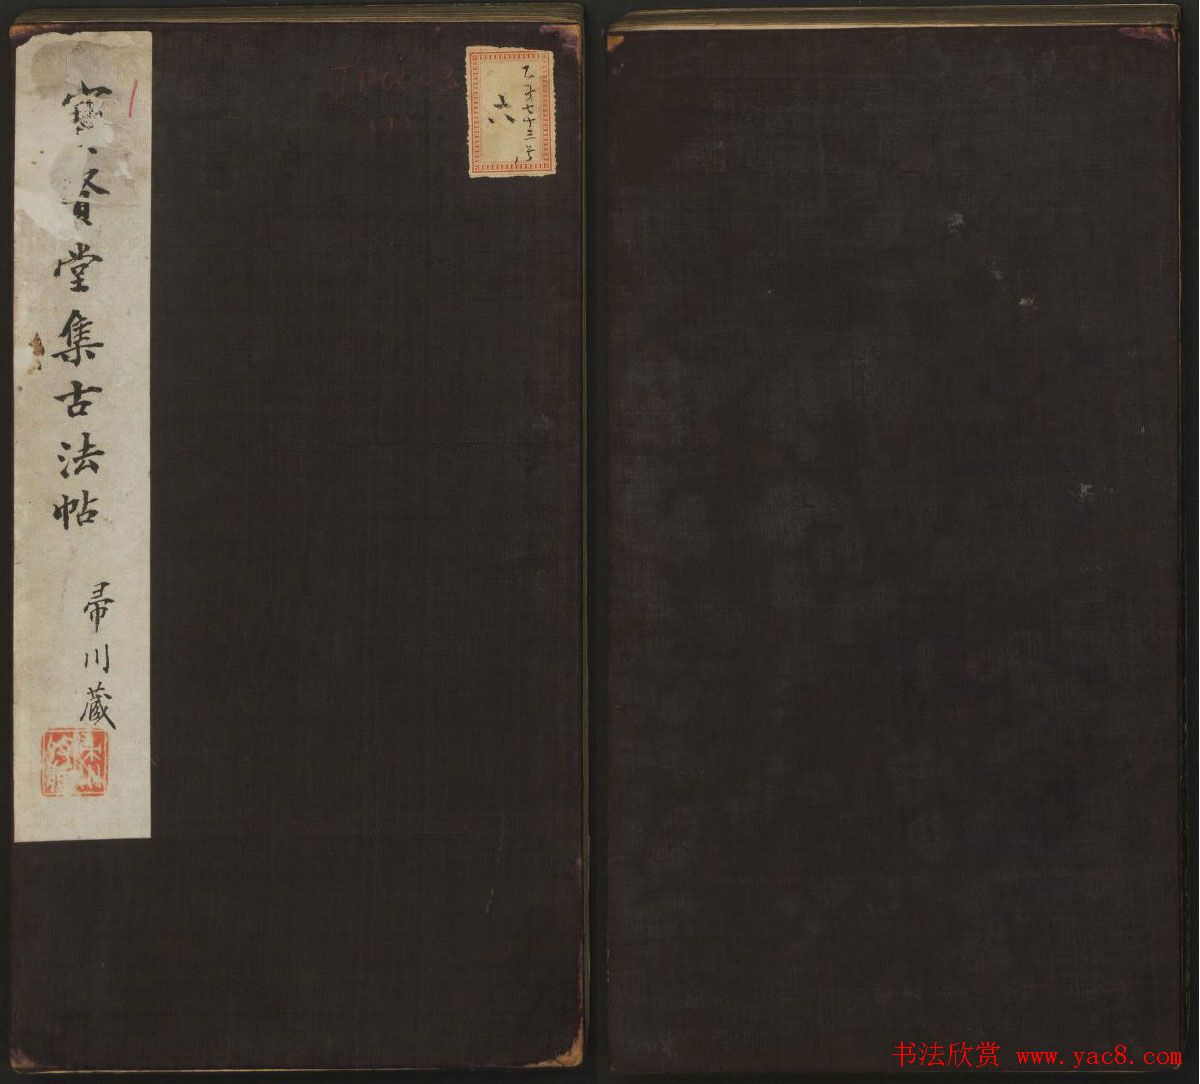 寶賢堂集古法帖
帚川藏
乙第七十三号
六
书法欣赏 www.yac8.com